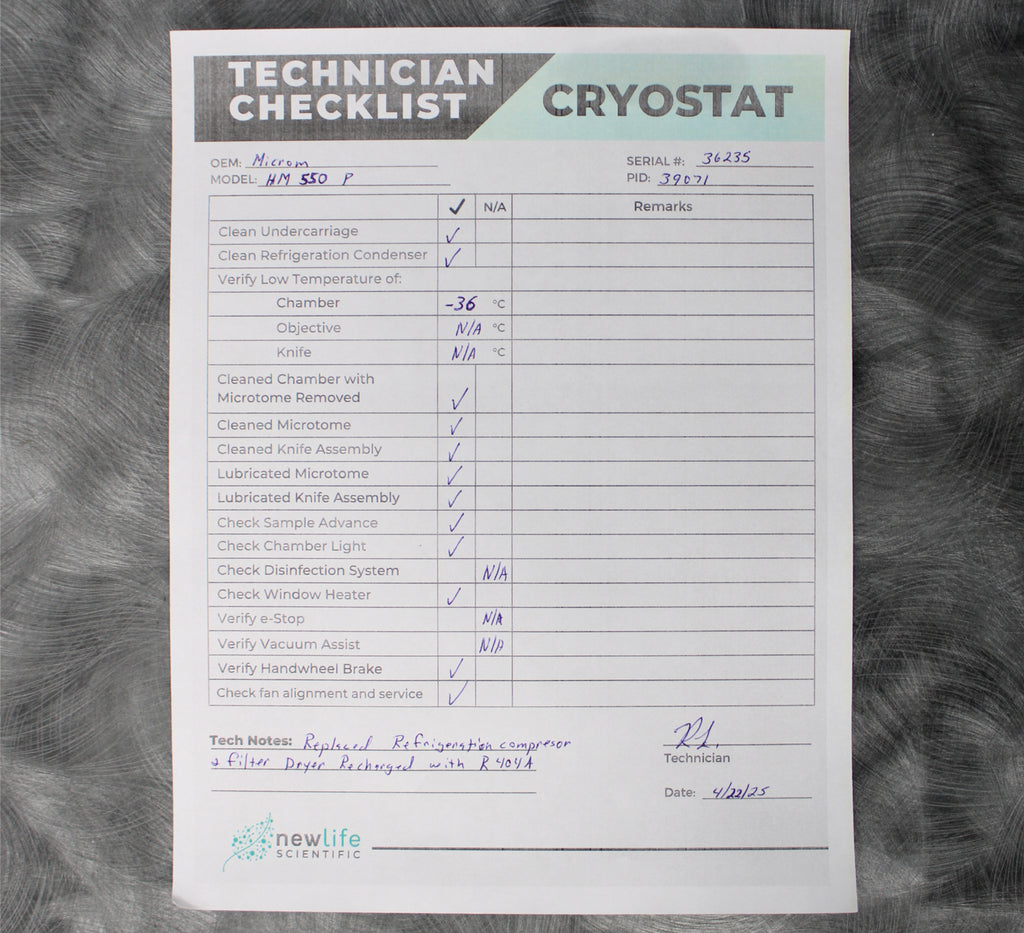 TECHNICIAN
CHECKLIST
CRYOSTAT
OEM: Microm
SERIAL #: 36235
MODEL: HM 550 P
PID: 39071
✓ N/A Remarks
Clean Undercarriage ✓
Clean Refrigeration Condenser ✓
Verify Low Temperature of:
Chamber -36 °C
Objective N/A °C
Knife N/A °C
Cleaned Chamber with
Microtome Removed ✓
Cleaned Microtome ✓
Cleaned Knife Assembly ✓
Lubricated Microtome ✓
Lubricated Knife Assembly ✓
Check Sample Advance ✓
Check Chamber Light ✓
Check Disinfection System N/A
Check Window Heater ✓
Verify e-Stop N/A
Verify Vacuum Assist N/A
Verify Handwheel Brake ✓
Check fan alignment and service ✓
Tech Notes: Replaced Refrigeration compresor
& filter Dryer Recharged with R404A
Technician
Date: 4/22/25
newlife
SCIENTIFIC